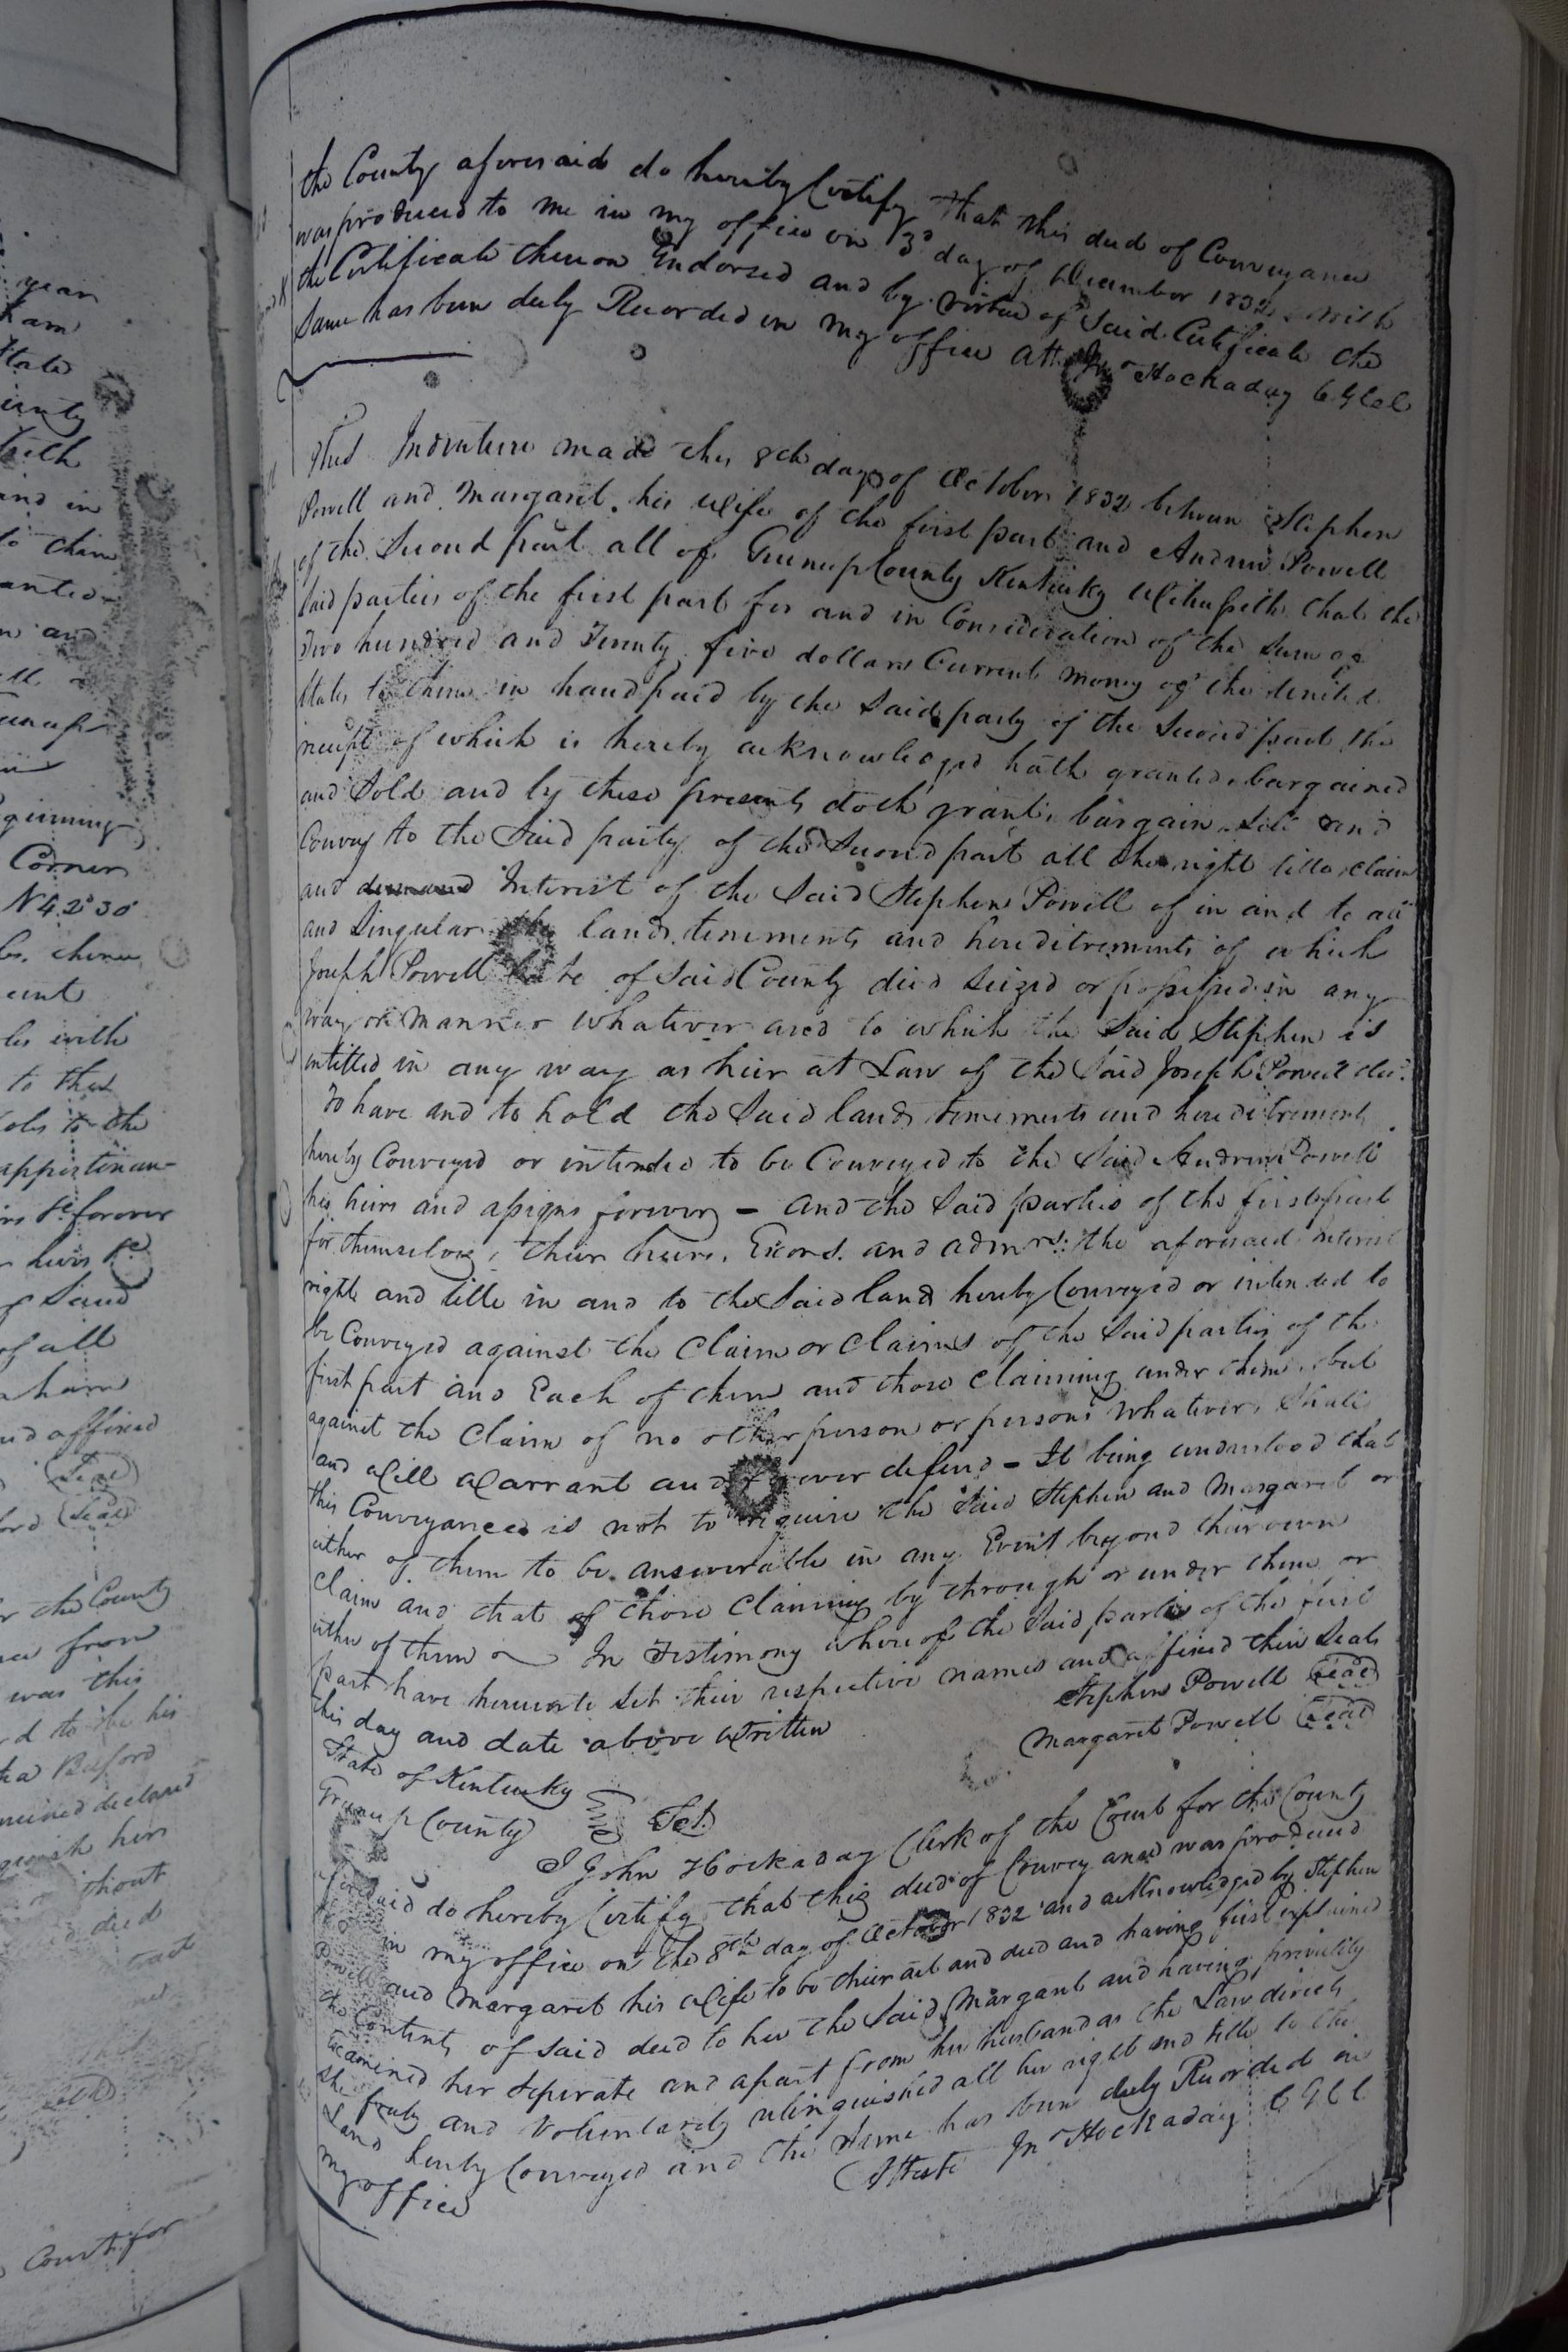 year
ham
State
ounty
with
and in
to them
anted
and
Greenup
ginning
Corner
N 42° 30'
thence
les with
to that
poles to the
appertinan-
rs &c forever
heirs &c
of Said
of all
aham
nd affixed
Seal
ord Seal
r the County
from
was this
d to be his
Buford
amined declared
quish her
thout
deed
Court for
the County aforesaid do hereby Certify that this deed of Conveyance
was produced to me in my office on 3d day of December 1832 with
the Certificate thereon Endorsed and by virtue of Said Certificate the
Same has been duly Recorded in my office Att Jno Hockaday C G C C
This Indenture made this 8th day of October 1832 between Stephen
Powell and Margaret his Wife of the first part and Andrew Powell
of the Second part all of Greenup County Kentucky Witnesseth that the
Said parties of the first part for and in Consideration of the Sum of
Two hundred and Twenty five dollars Current money of the United
States to them in hand paid by the Said party of the Second part the
receipt of which is hereby acknowledged hath granted bargained
and Sold and by these presents doth grant, bargain Sell and
Convey to the Said party of the Second part all the right title, claim
and demand Interest of the Said Stephen Powell of in and to all
and Singular the lands tenements and hereditrements of which
Joseph Powell late of Said County died Seized or possessed in any
way or manner whatever and to which the Said Stephen is
entitled in any way as heir at Law of the Said Joseph Powell decd.
To have and to hold the Said lands tenements and hereditrements
hereby Conveyed or intended to be Conveyed to the Said Andrew Powell
his heirs and assigns forever - and the Said parties of the first part
for themselves, their heirs, Exors. and admrs. the aforesaid interest
right and title in and to the Said land hereby Conveyed or intended to
be Conveyed against the Claim or Claims of the Said parties of the
first part and Each of them and those Claiming under them, but
against the Claim of no other person or persons whatever, Shall
and Will Warrant and forever defend - It being understood that
this Conveyance is not to require the Said Stephen and Margaret or
either of them to be answerable in any Event beyond their own
Claim and that of those Claiming by through or under them or
either of them In Testimony whereof the Said parties of the first
part have hereunto Set their respective names and affixed their Seals
this day and date above Written
Stephen Powell Seal
Margaret Powell Seal
State of Kentucky
Greenup County Sct.
I John Hockaday Clerk of the Court for the County
aforesaid do hereby Certify that this deed of Conveyance was produced
in my office on the 8th day of October 1832 and acknowledged by Stephen
Powell and Margaret his Wife to be their act and deed and having first explained
the Contents of Said deed to her the Said Margaret and having privately
Examined her Seperate and apart from her husband as the Law directs
She freely and Voluntarily relinquished all her right and title to the
Land hereby Conveyed and the Same has been duly Recorded in
my office Atteste Jno Hockaday C G C C